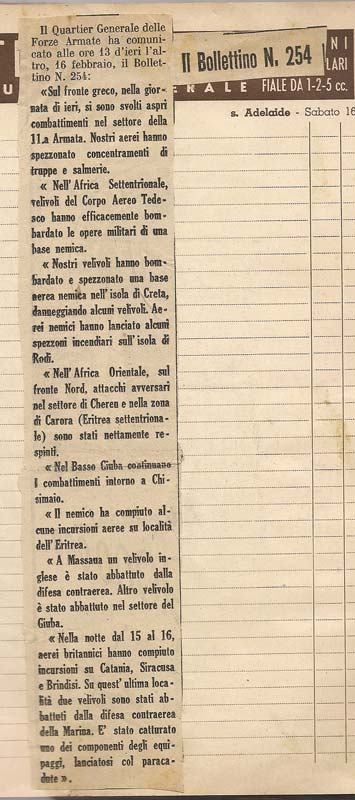 Il Quartier Generale delle
Forze Armate ha comuni-
cato alle ore 13 d'ieri l'al-
tro, 16 febbraio, il Bollet-
tino N. 254:
«Sul fronte greco, nella gior-
nata di ieri, si sono svolti aspri
combattimenti nel settore della
11.a Armata. Nostri aerei hanno
spezzonato concentramenti di
truppe e salmerie.
« Nell'Africa Settentrionale,
velivoli del Corpo Aereo Tede-
sco hanno efficacemente bom-
bardato le opere militari di una
base nemica.
« Nostri velivoli hanno bom-
bardato e spezzonato una base
aerea nemica nell'isola di Creta,
danneggiando alcuni velivoli. Ae-
rei nemici hanno lanciato alcuni
spezzoni incendiari sull'isola di
Rodi.
« Nell'Africa Orientale, sul
fronte Nord, attacchi avversari
nel settore di Cheren e nella zona
di Carora (Eritrea settentriona-
le) sono stati nettamente re-
spinti.
« Nel Basso Giuba continuano
i combattimenti intorno a Chi-
simaio.
« Il nemico ha compiuto al-
cune incursioni aeree su località
dell'Eritrea.
« A Massaua un velivolo in-
glese è stato abbattuto dalla
difesa contraerea. Altro velivolo
è stato abbattuto nel settore del
Giuba.
« Nella notte dal 15 al 16,
aerei britannici hanno compiuto
incursioni su Catania, Siracusa
e Brindisi. Su quest'ultima loca-
lità due velivoli sono stati ab-
battuti dalla difesa contraerea
della Marina. E' stato catturato
uno dei componenti degli equi-
paggi, lanciatosi col paraca-
dute ».
Il Bollettino N. 254
NI
LARI
ERALE FIALE DA 1-2-5 cc.
s. Adelaide - Sabato 16